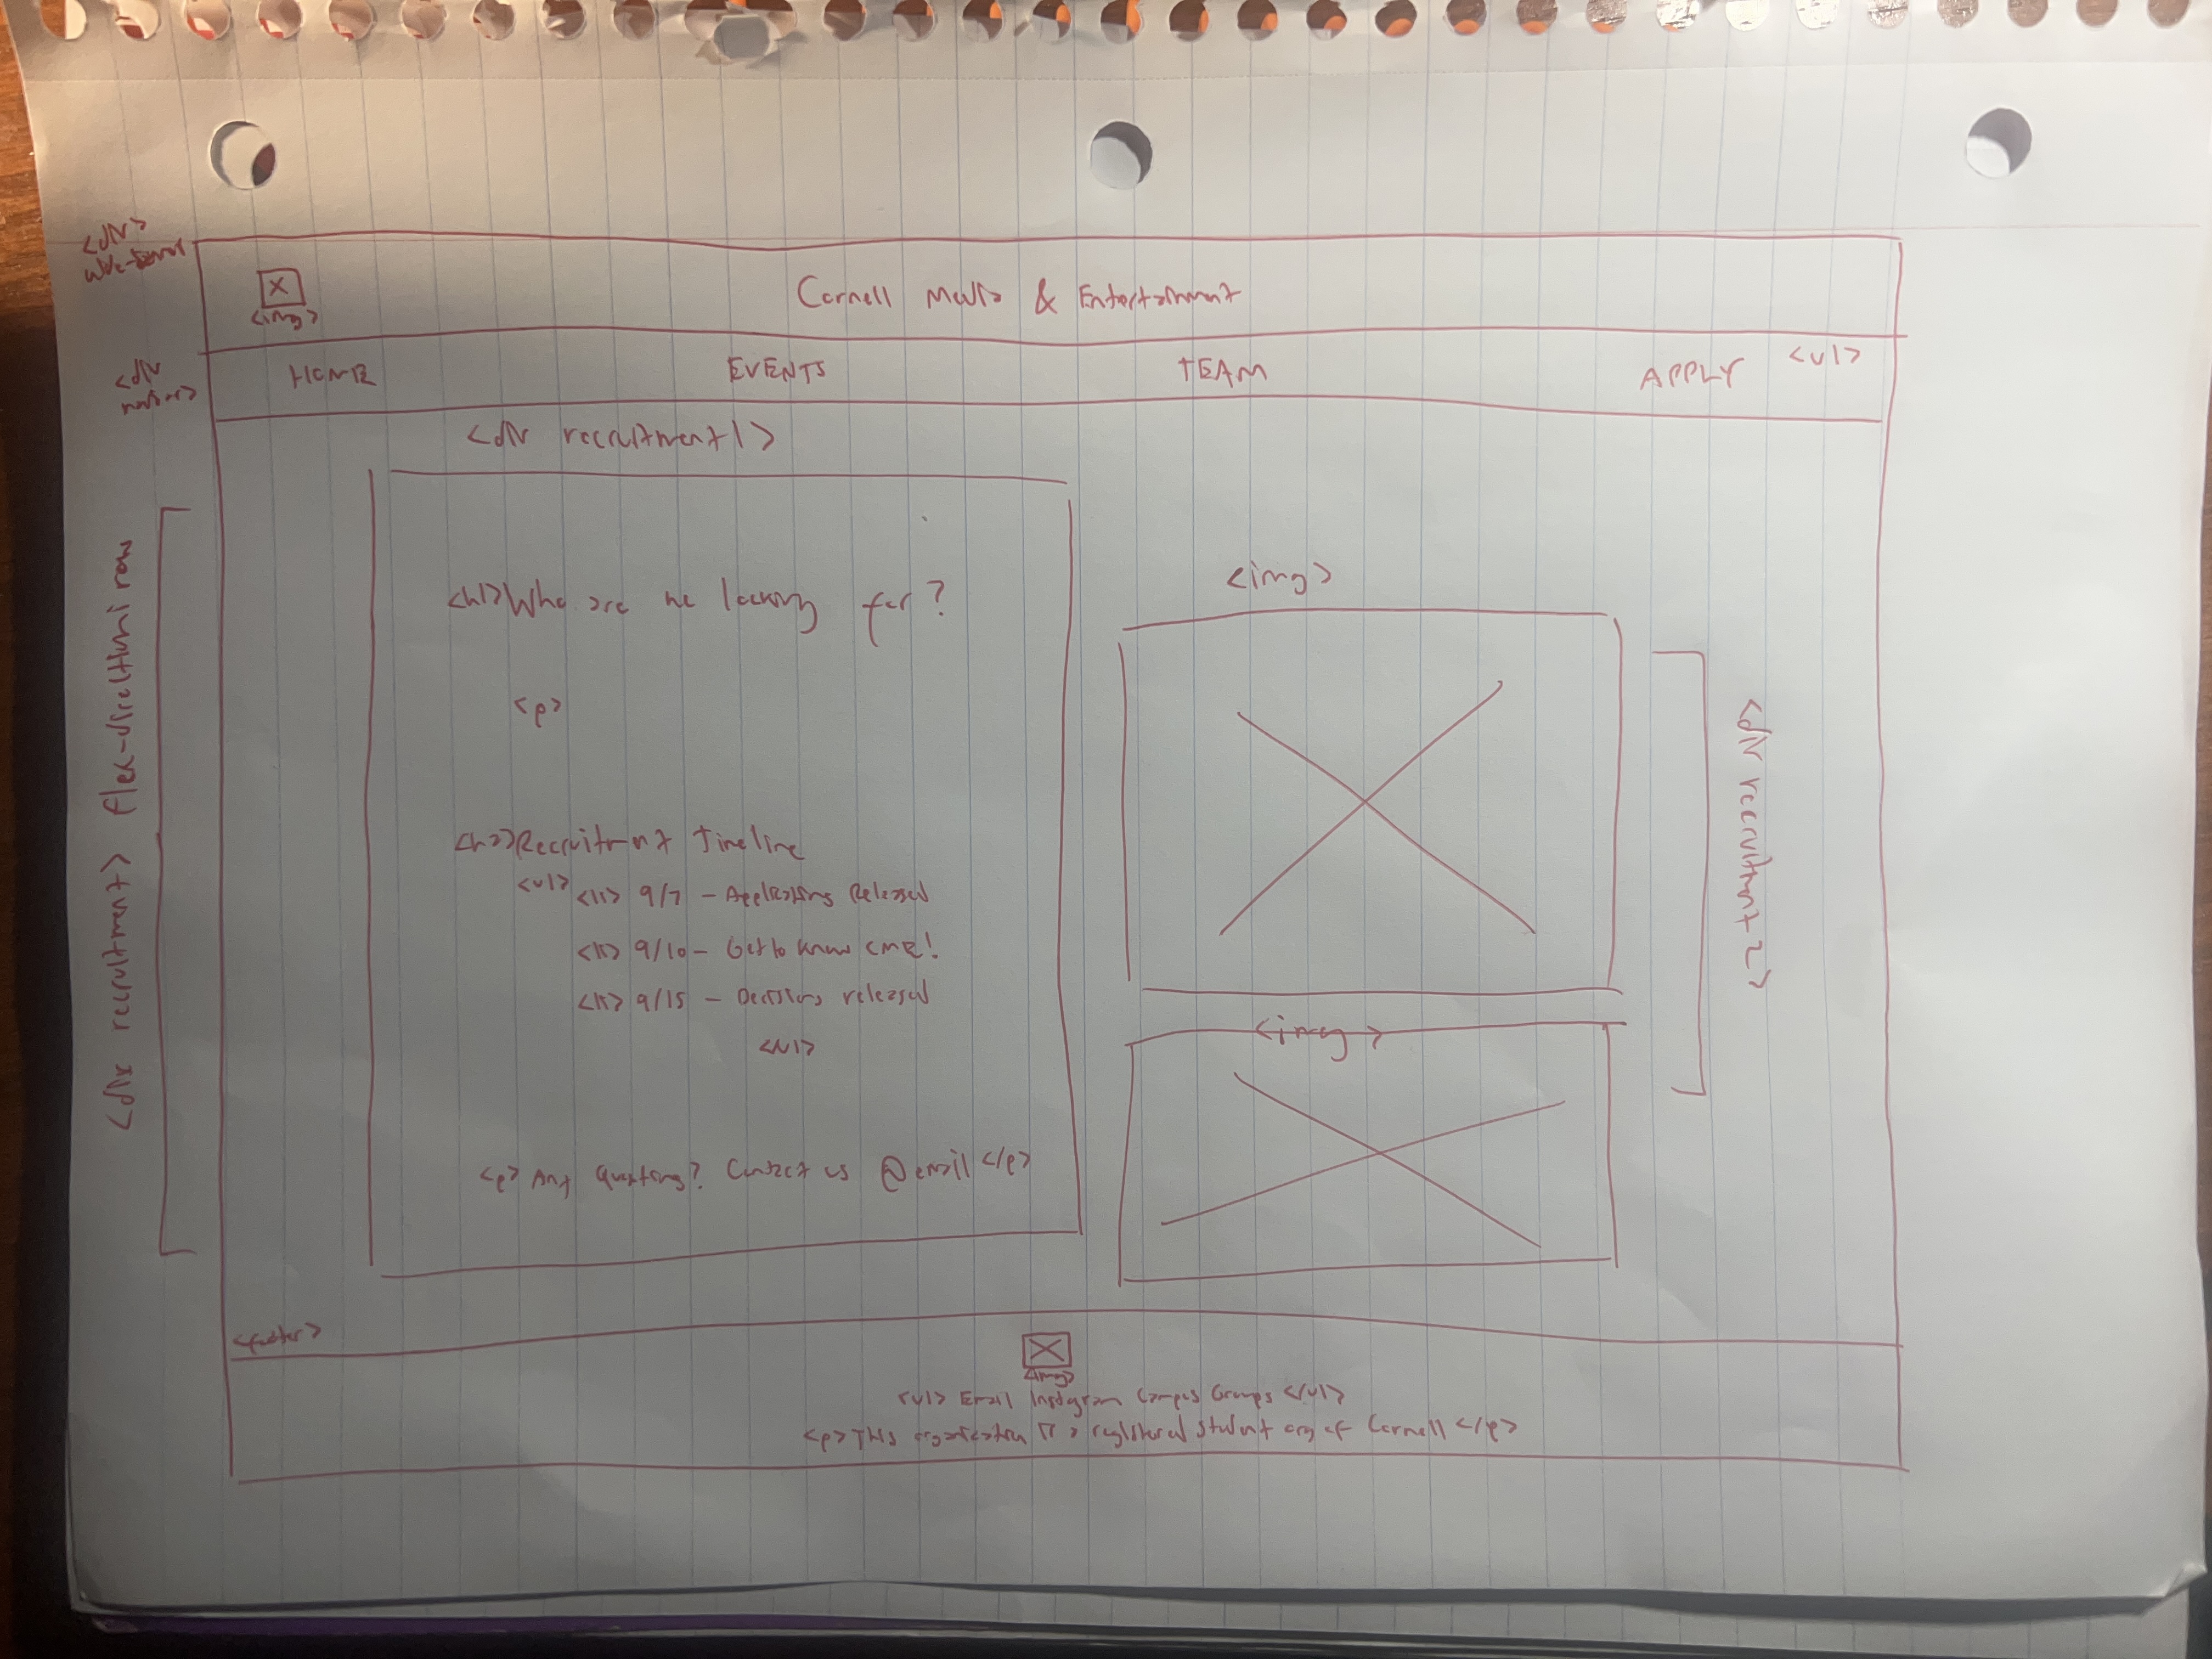 <div>
<img>
Cornell Media & Entertainment
<div navbar>
HOME EVENTS TEAM APPLY <ul>
<div recruitment1>
<div recruitment> flex-direction: row
<h1>Who are we looking for?
<p>
<h2>Recruitment Timeline
<ul> <li> 9/7 - Applications Released
<li> 9/10 - Get to know CME!
<li> 9/15 - Decisions released
<p> Any Questions? Contact us @email </p>
<img>
<img>
<div recruitment2>
<footer>
<img>
<ul> Email Instagram Campus Groups </ul>
<p> This organization is a registered student org of Cornell </p>